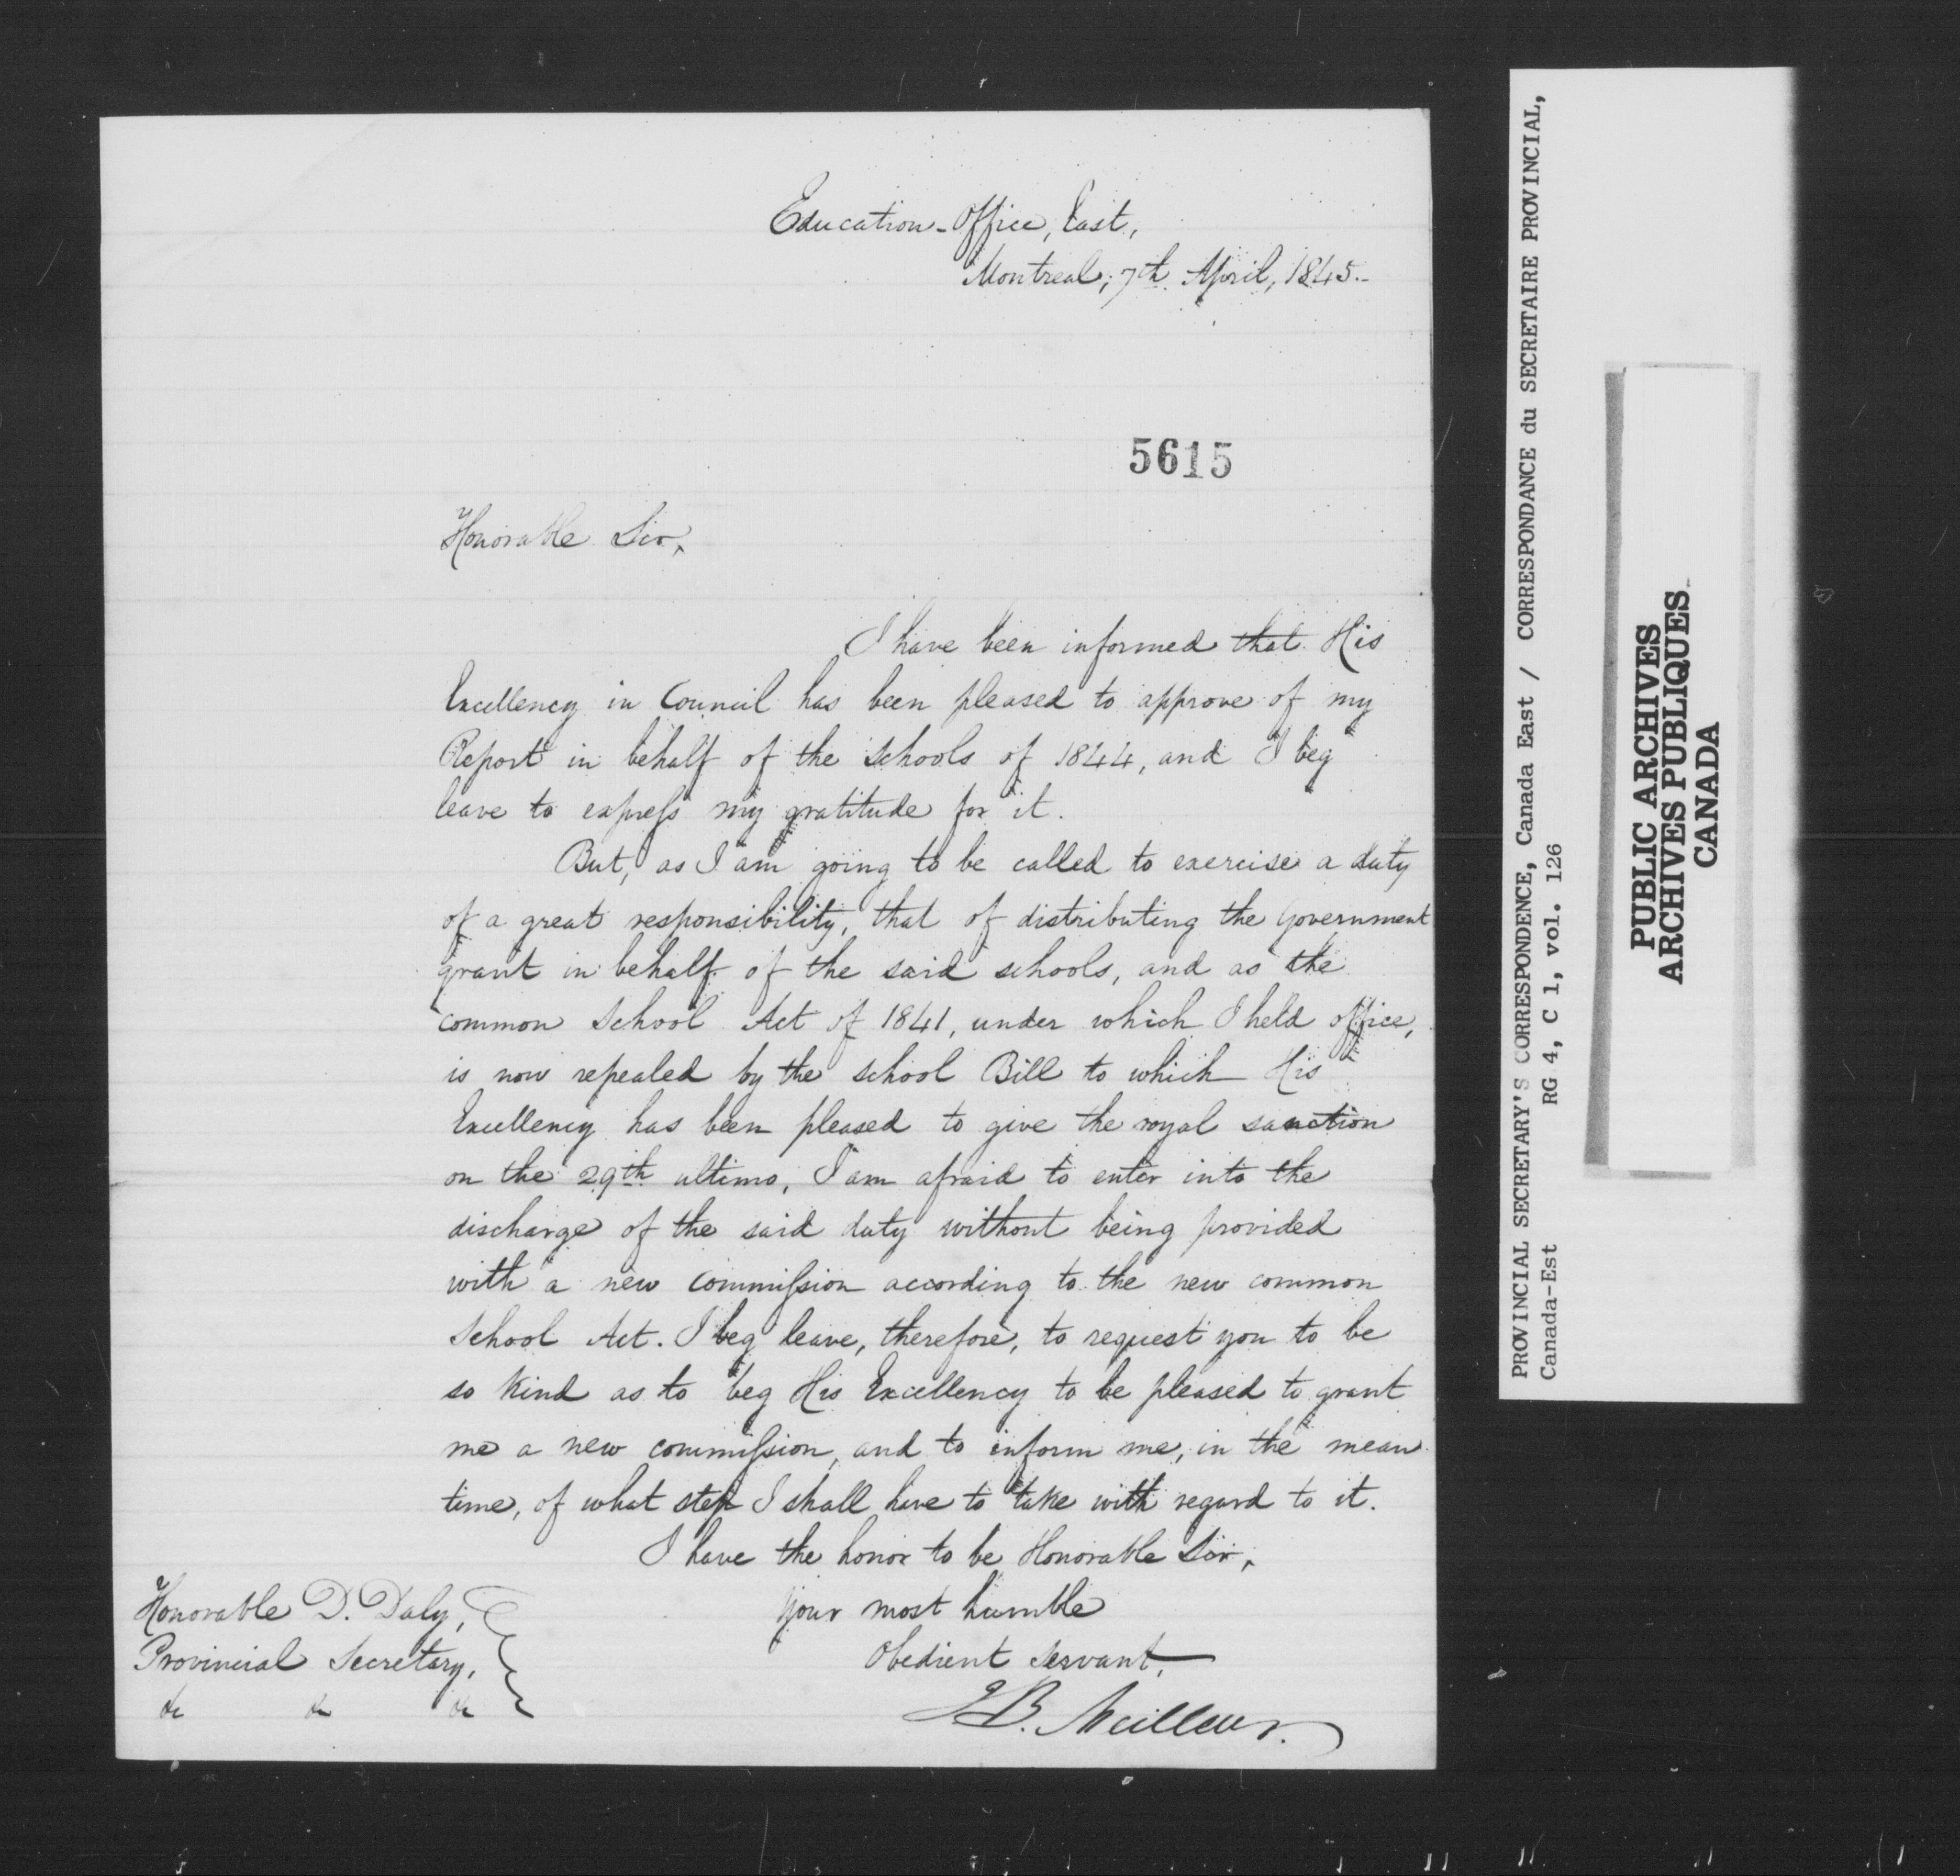 Education-Office, East,
Montreal, 7th April, 1845.-
5615
Honorable Sir,
I have been informed that His
Excellency in Council has been pleased to approve of my
Report in behalf of the Schools of 1844, and I beg
leave to express my gratitude for it.
But, as I am going to be called to exercise a duty
of a great responsibility, that of distributing the Government
grant in behalf of the said schools, and as the
common School Act of 1841, under which I held office,
is now repealed by the school Bill to which His
Excellency has been pleased to give the royal sanction
on the 29th ultimo, I am afraid to enter into the
discharge of the said duty without being provided
with a new commission according to the new common
School Act. I beg leave, therefore, to request you to be
so kind as to beg His Excellency to be pleased to grant
me a new commission, and to inform me, in the mean
time, of what step I shall have to take with regard to it.
I have the honor to be Honorable Sir,
Your most humble
Obedient Servant,
J B. Meilleur.
Honorable D. Daly,
Provincial Secretary,
&c &c &c
PROVINCIAL SECRETARY'S CORRESPONDENCE, Canada East / CORRESPONDANCE du SECRETAIRE PROVINCIAL,
Canada-Est RG 4, C 1, vol. 126
PUBLIC ARCHIVES
ARCHIVES PUBLIQUES
CANADA